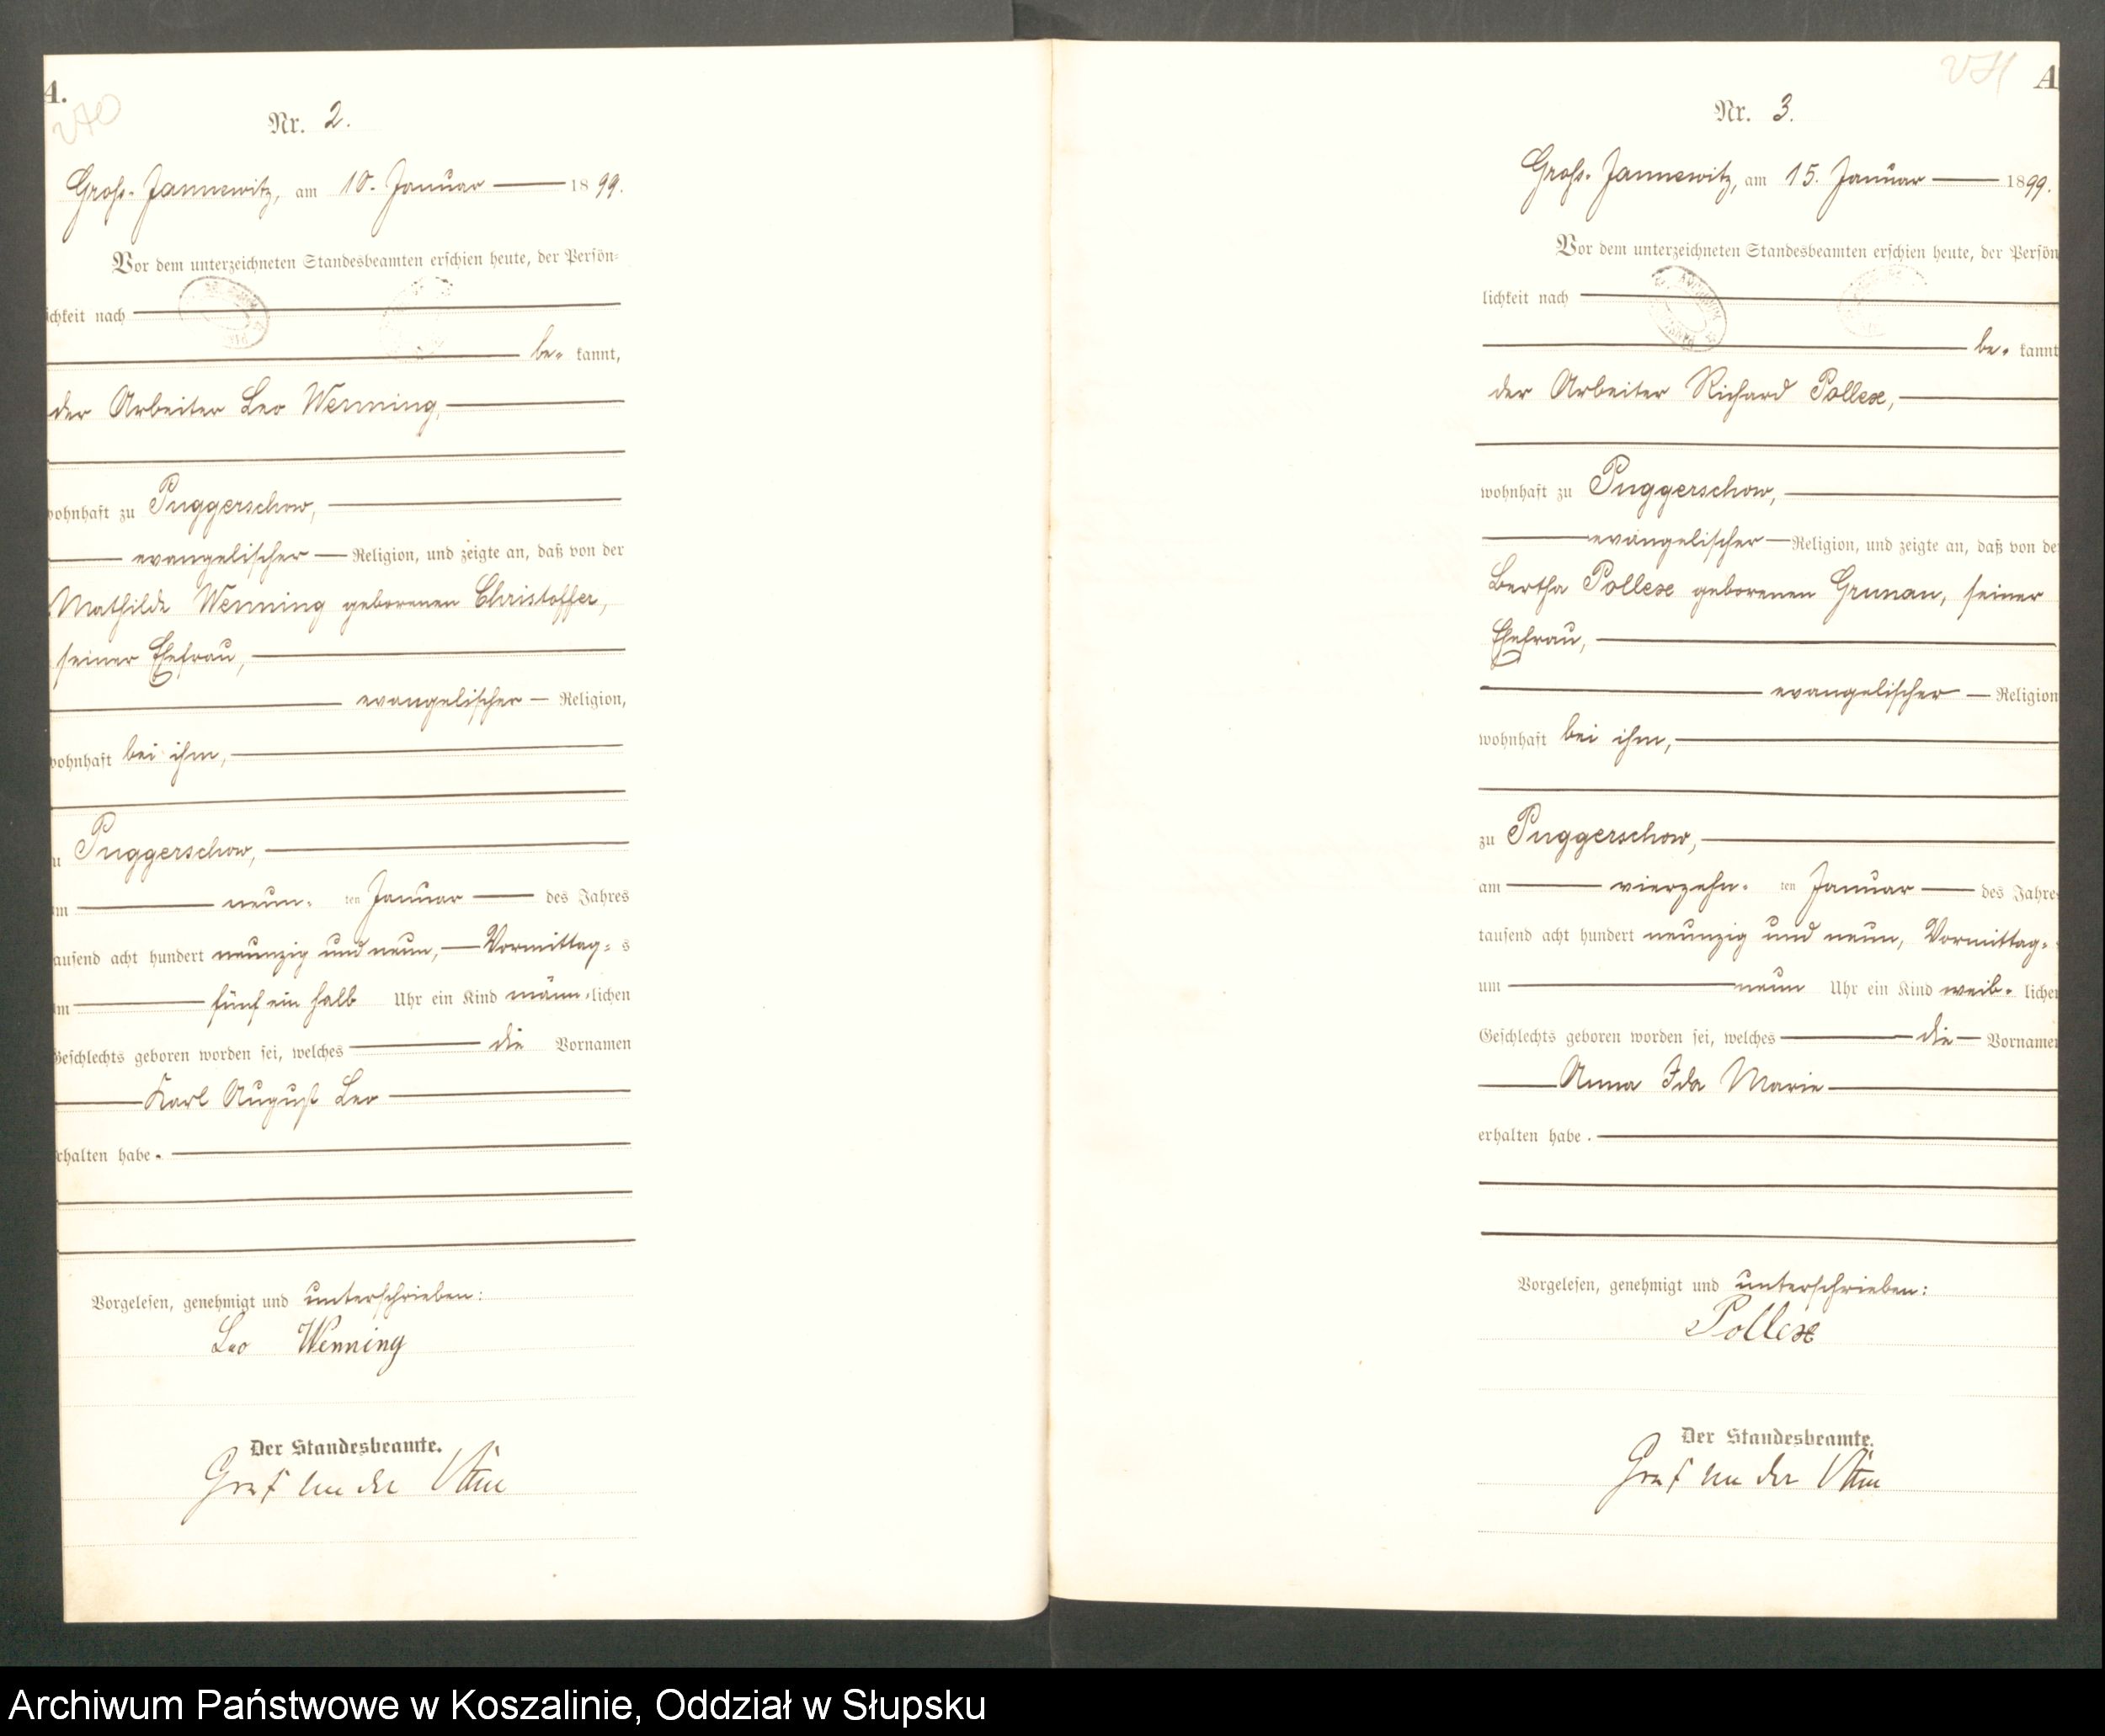 A.
270
Nr. 2.
Groß-Jannewitz, am 10. Januar 1899.
Vor dem unterzeichneten Standesbeamten erschien heute, der Persön-
ichkeit nach
be- kannt,
der Arbeiter Leo Wenning,
wohnhaft zu Puggerschow,
evangelischer Religion, und zeigte an, daß von der
Mathilde Wenning geborenen Christoffer,
seiner Ehefrau,
evangelischer Religion,
wohnhaft bei ihm,
u Puggerschow,
am neun- ten Januar des Jahres
tausend acht hundert neunzig und neun, Vormittag- s
um fünf ein halb Uhr ein Kind männ-lichen
Geschlechts geboren worden sei, welches die Vornamen
Karl August Leo
erhalten habe.
Vorgelesen, genehmigt und unterschrieben:
Leo Wenning
Der Standesbeamte.
Graf von der
A
271
Nr. 3.
Groß-Jannewitz, am 15. Januar 1899.
Vor dem unterzeichneten Standesbeamten erschien heute, der Persön
lichkeit nach
be- kannt
der Arbeiter Richard Pollex,
wohnhaft zu Puggerschow,
evangelischer Religion, und zeigte an, daß von de
Bertha Pollex geborenen Grunau, seiner
Ehefrau,
evangelischer Religion
wohnhaft bei ihm,
zu Puggerschow,
am vierzehn- ten Januar des Jahres
tausend acht hundert neunzig und neun, Vormittag-
um neun Uhr ein Kind weib- lichen
Geschlechts geboren worden sei, welches die Vornamen
Anna Ida Marie
erhalten habe.
Vorgelesen, genehmigt und unterschrieben:
Pollex
Der Standesbeamte.
Graf von der
Archiwum Państwowe w Koszalinie, Oddział w Słupsku